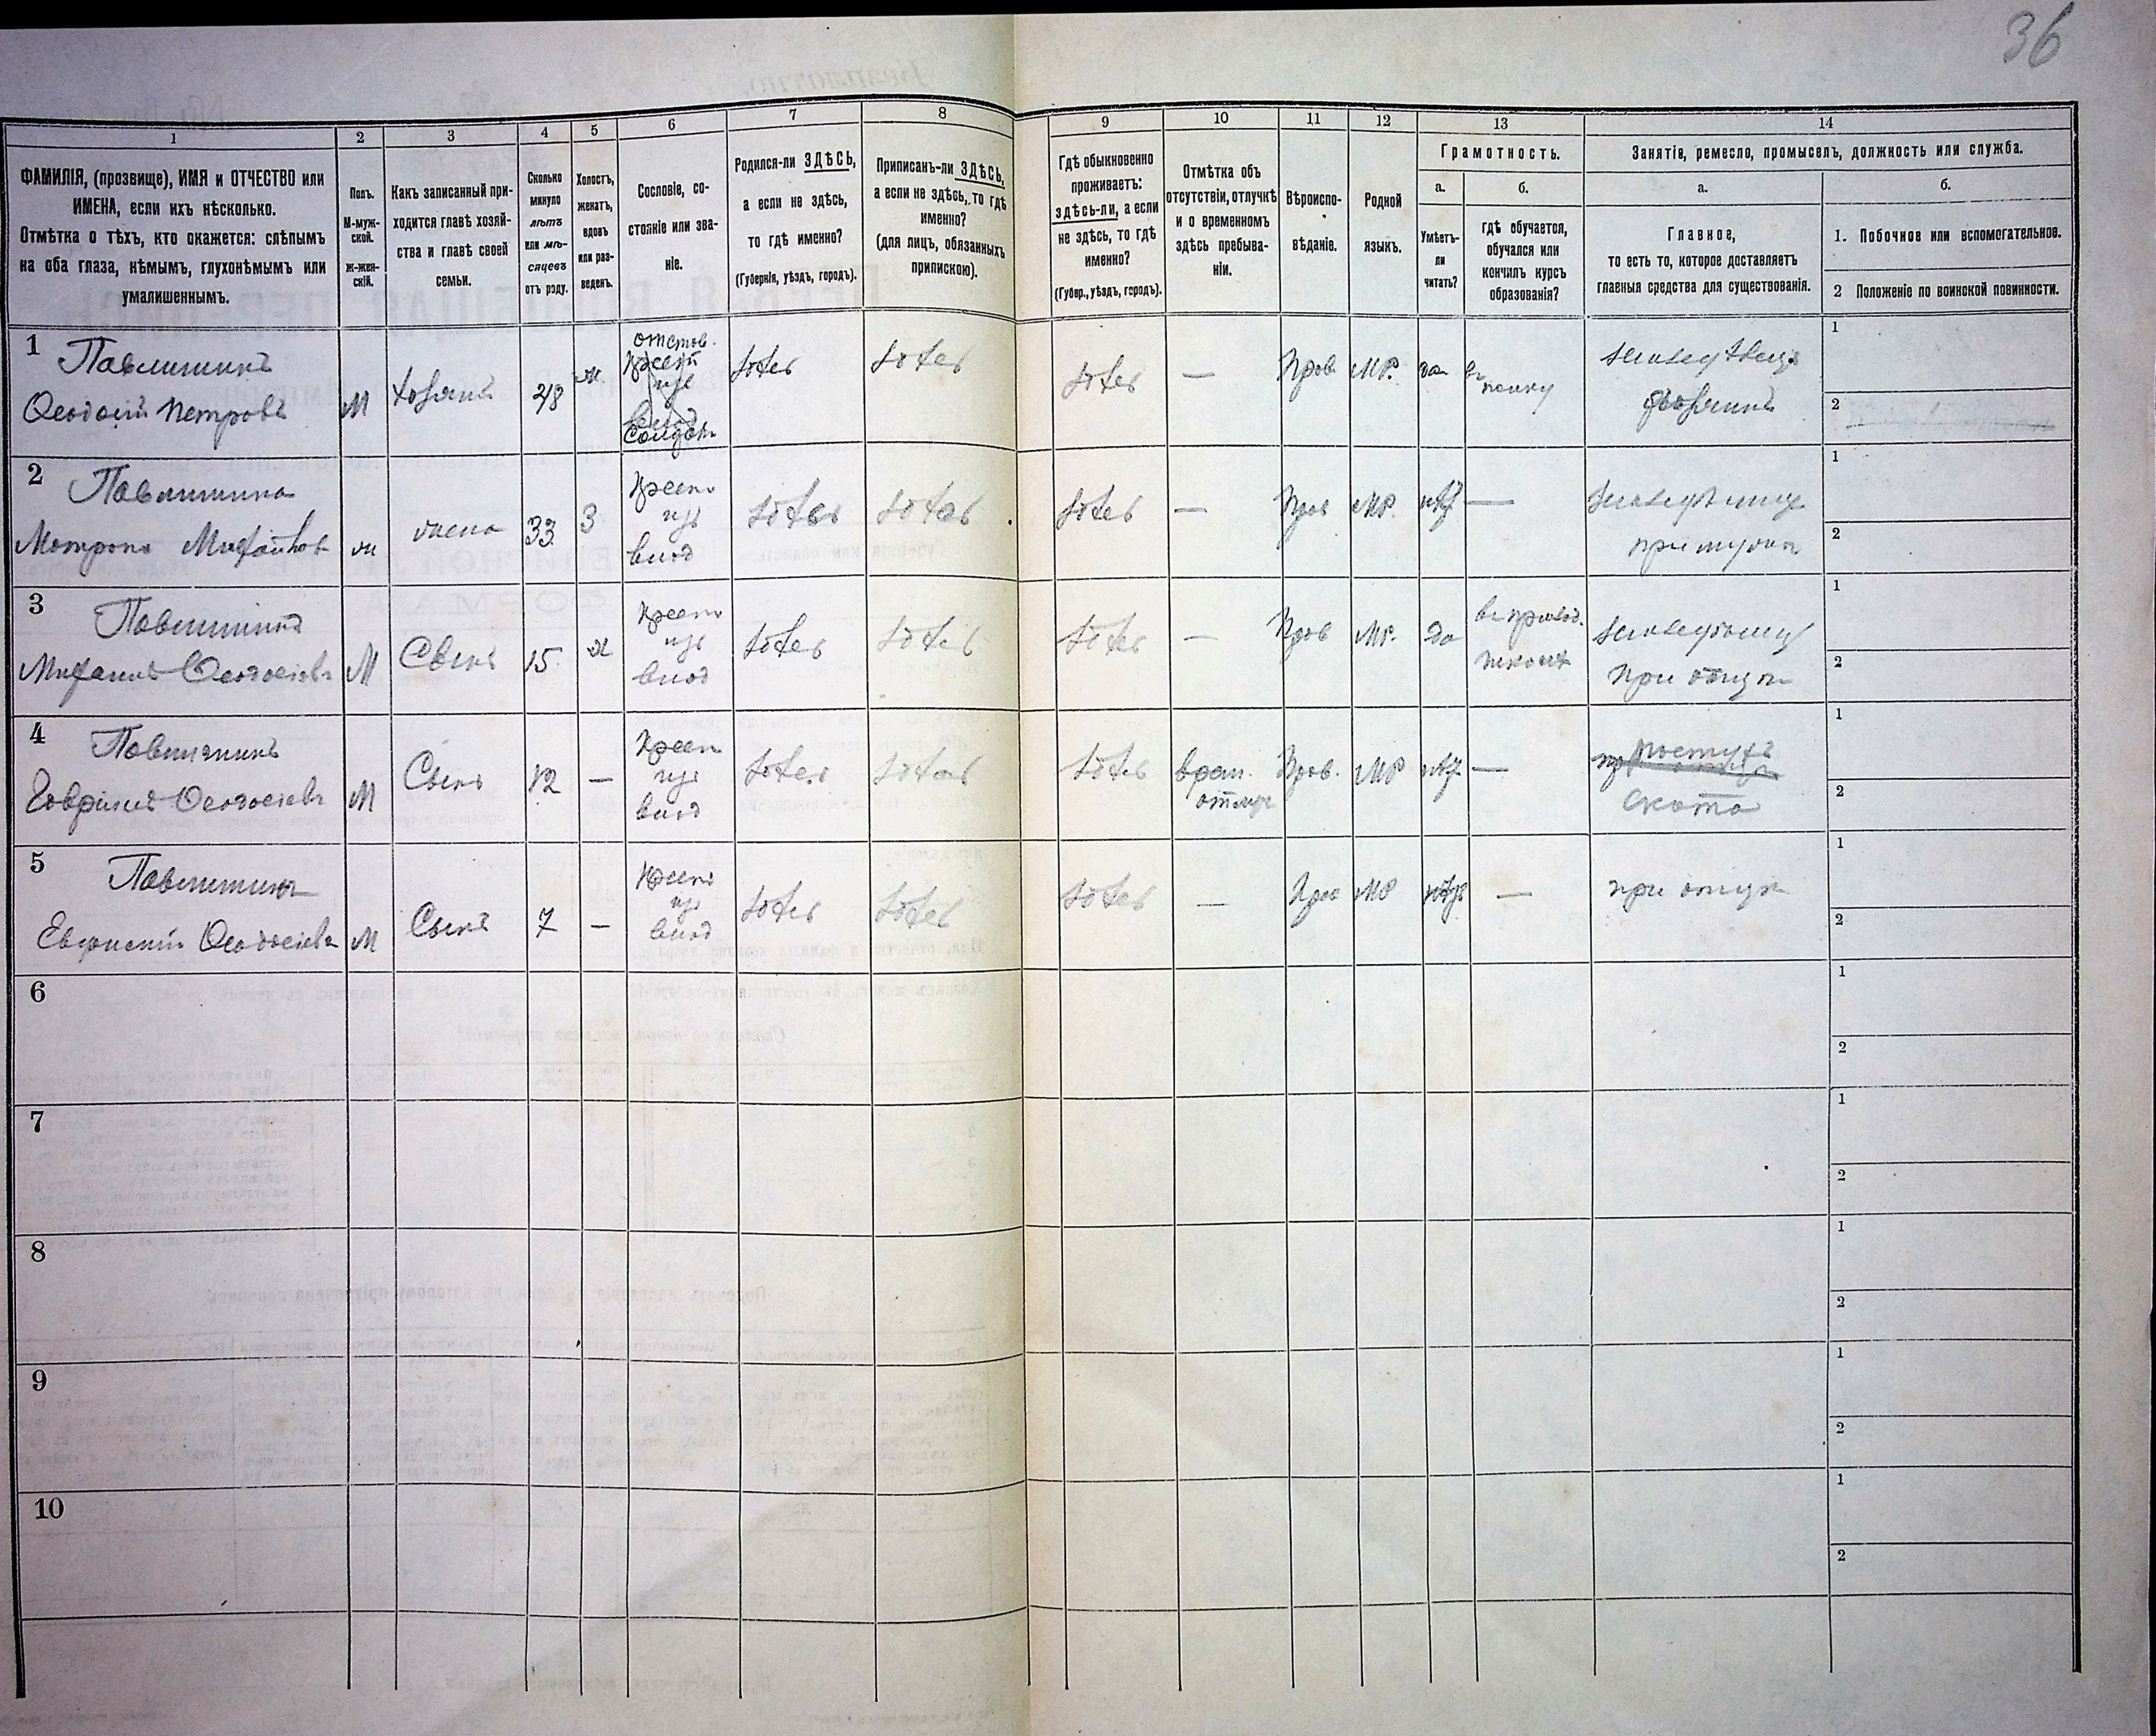 36
1
2
3
4
5
6
7
8
9
10
11
12
13
14
ФАМИЛІЯ, (прозвище), ИМЯ и ОТЧЕСТВО или
ИМЕНА, если ихъ нѣсколько.
Отмѣтка о тѣхъ, кто окажется: слѣпымъ
на оба глаза, нѣмымъ, глухонѣмымъ или
умалишеннымъ.
Полъ.
М-муж-
ской.
Ж-жен-
скій.
Какъ записанный при-
ходится главѣ хозяй-
ства и главѣ своей
семьи.
Сколько
минуло
лѣтъ
или мѣ-
сяцевъ
отъ роду.
Холостъ,
женатъ,
вдовъ
или раз-
веденъ.
Сословіе, со-
стояніе или зва-
ніе.
Родился-ли ЗДѢСЬ,
а если не здѣсь,
то гдѣ именно?
(Губернія, уѣздъ, городъ).
Приписанъ-ли ЗДѢСЬ,
а если не здѣсь, то гдѣ
именно?
(для лицъ, обязанныхъ
припискою).
Гдѣ обыкновенно
проживаетъ:
здѣсь-ли, а если
не здѣсь, то гдѣ
именно?
(Губер., уѣздъ, городъ).
Отмѣтка объ
отсутствіи, отлучкѣ
и о временномъ
здѣсь пребыва-
ніи.
Вѣроиспо-
вѣданіе.
Родной
языкъ.
Грамотность.
а.
Умѣетъ-
ли
читать?
б.
гдѣ обучается,
обучался или
кончилъ курсъ
образованія?
Занятіе, ремесло, промыселъ, должность или служба.
а.
Главное,
то есть то, которое доставляетъ
главныя средства для существованія.
б.
1. Побочное или вспомогательное.
2 Положеніе по воинской повинности.
1
Павлишинъ
Ѳеодосій Петровъ
М
хозяинъ
48
отстав.
солдатъ
здѣсь
здѣсь
здѣсь
—
Прав
МР.
да
въ полку
хозяинъ
1
2
2
Павлишина
Матрона
жена
33
з
Крест
изъ
влад
здѣсь
здѣсь
здѣсь
—
Прав
МР.
нѣт
—
при мужѣ
1
2
3
Павлишинъ
Ѳеодосіевъ
М
Сынъ
15
Х
Крест
изъ
влад
здѣсь
здѣсь
здѣсь
—
Прав
МР.
да
въ приход.
школѣ
при отцѣ
1
2
4
Павлишинъ
Гавріилъ Ѳеодосіевъ
М
Сынъ
12
—
Крест
изъ
влад
здѣсь
здѣсь
здѣсь
врем.
отлуч
Прав.
МР
нѣт
—
пастухъ
скота
1
2
5
Павлишинъ
Ѳеодосіевъ
М
Сынъ
7
—
Крест
изъ
влад
здѣсь
здѣсь
здѣсь
—
Прав
МР
нѣт
—
при отцѣ
1
2
6
1
2
7
1
2
8
1
2
9
1
2
10
1
2